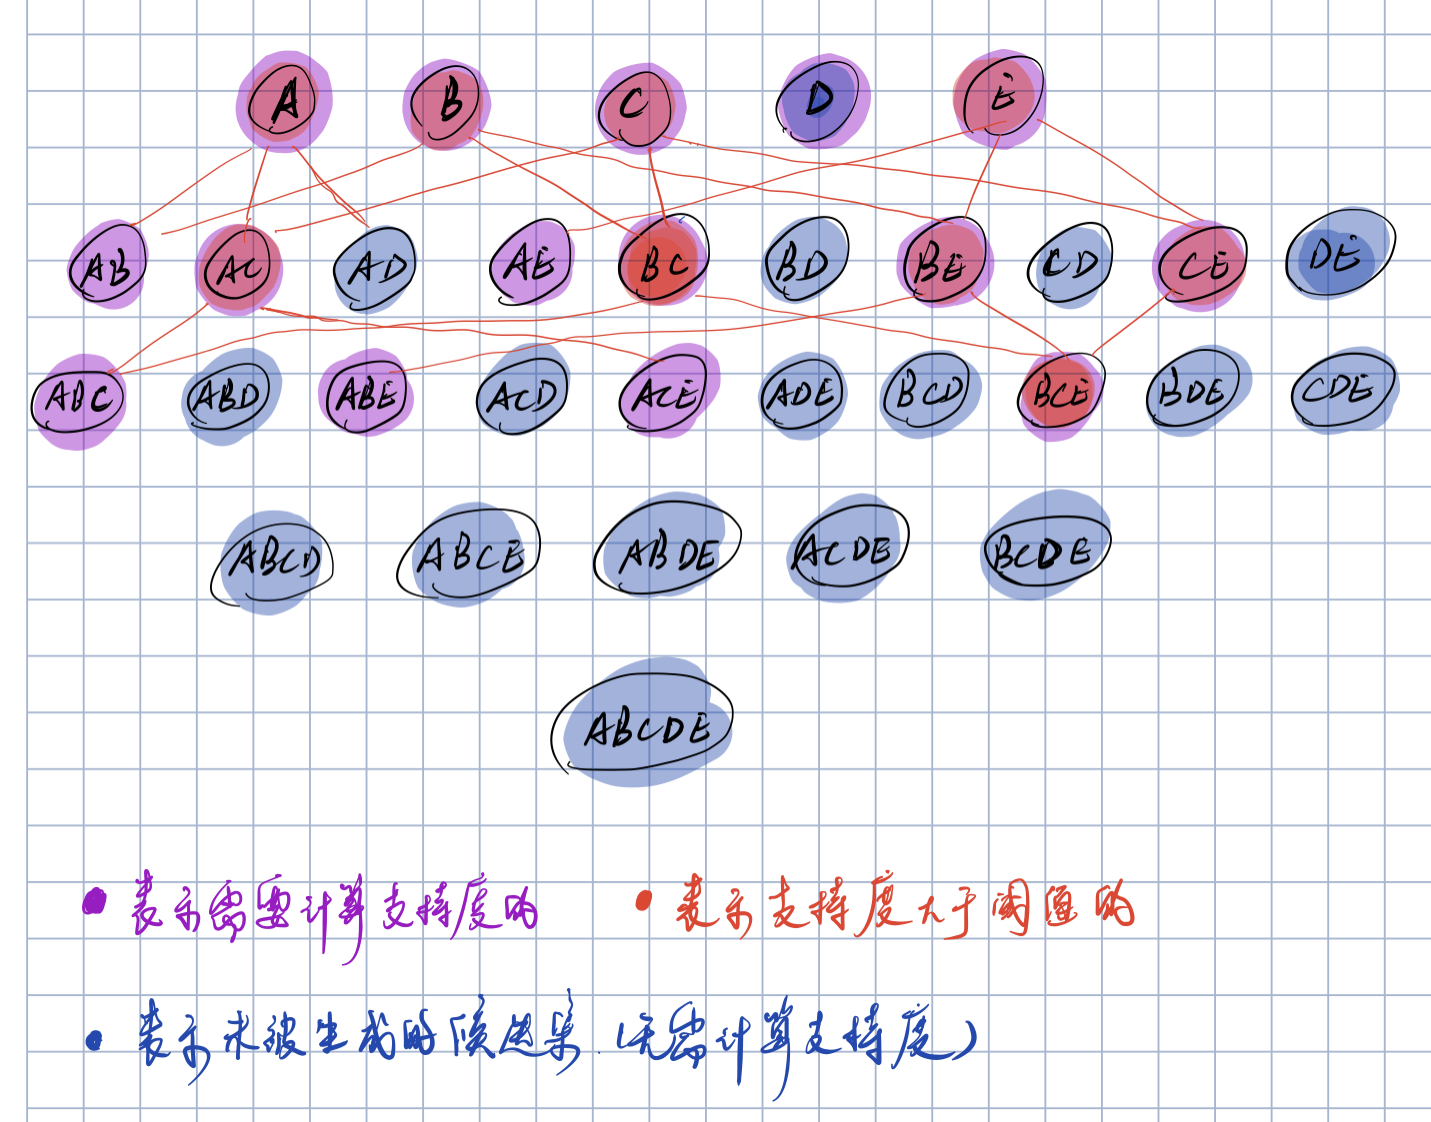 A B C D E
AB AC AD AE BC BD BE CD CE DE
ABC ABD ABE ACD ACE ADE BCD BCE BDE CDE
ABCD ABCE ABDE ACDE BCDE
ABCDE
表示需要计算支持度的
表示支持度大于阈值的
表示未被生成的候选集(无需计算支持度)